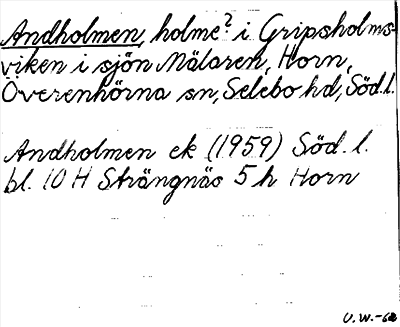 Andholmen, holme? i Gripsholms-
viken i sjön Mälaren, Horn,
Överenhörna sn, Selebo hd, Söd.l.
Andholmen ek (1959) Söd. l.
bl. 10 H Strängnäs 5 h Horn
U.W.-62